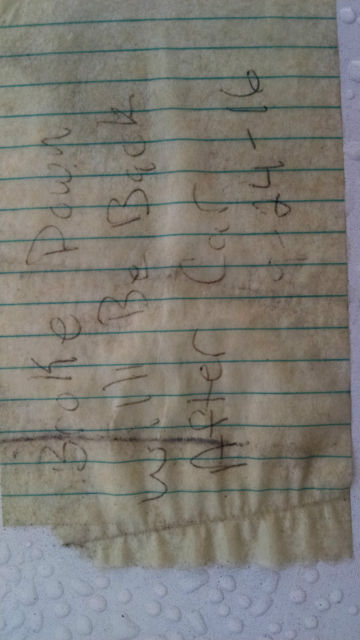 Broke Down
Will Be Back
After Car
9-24-16